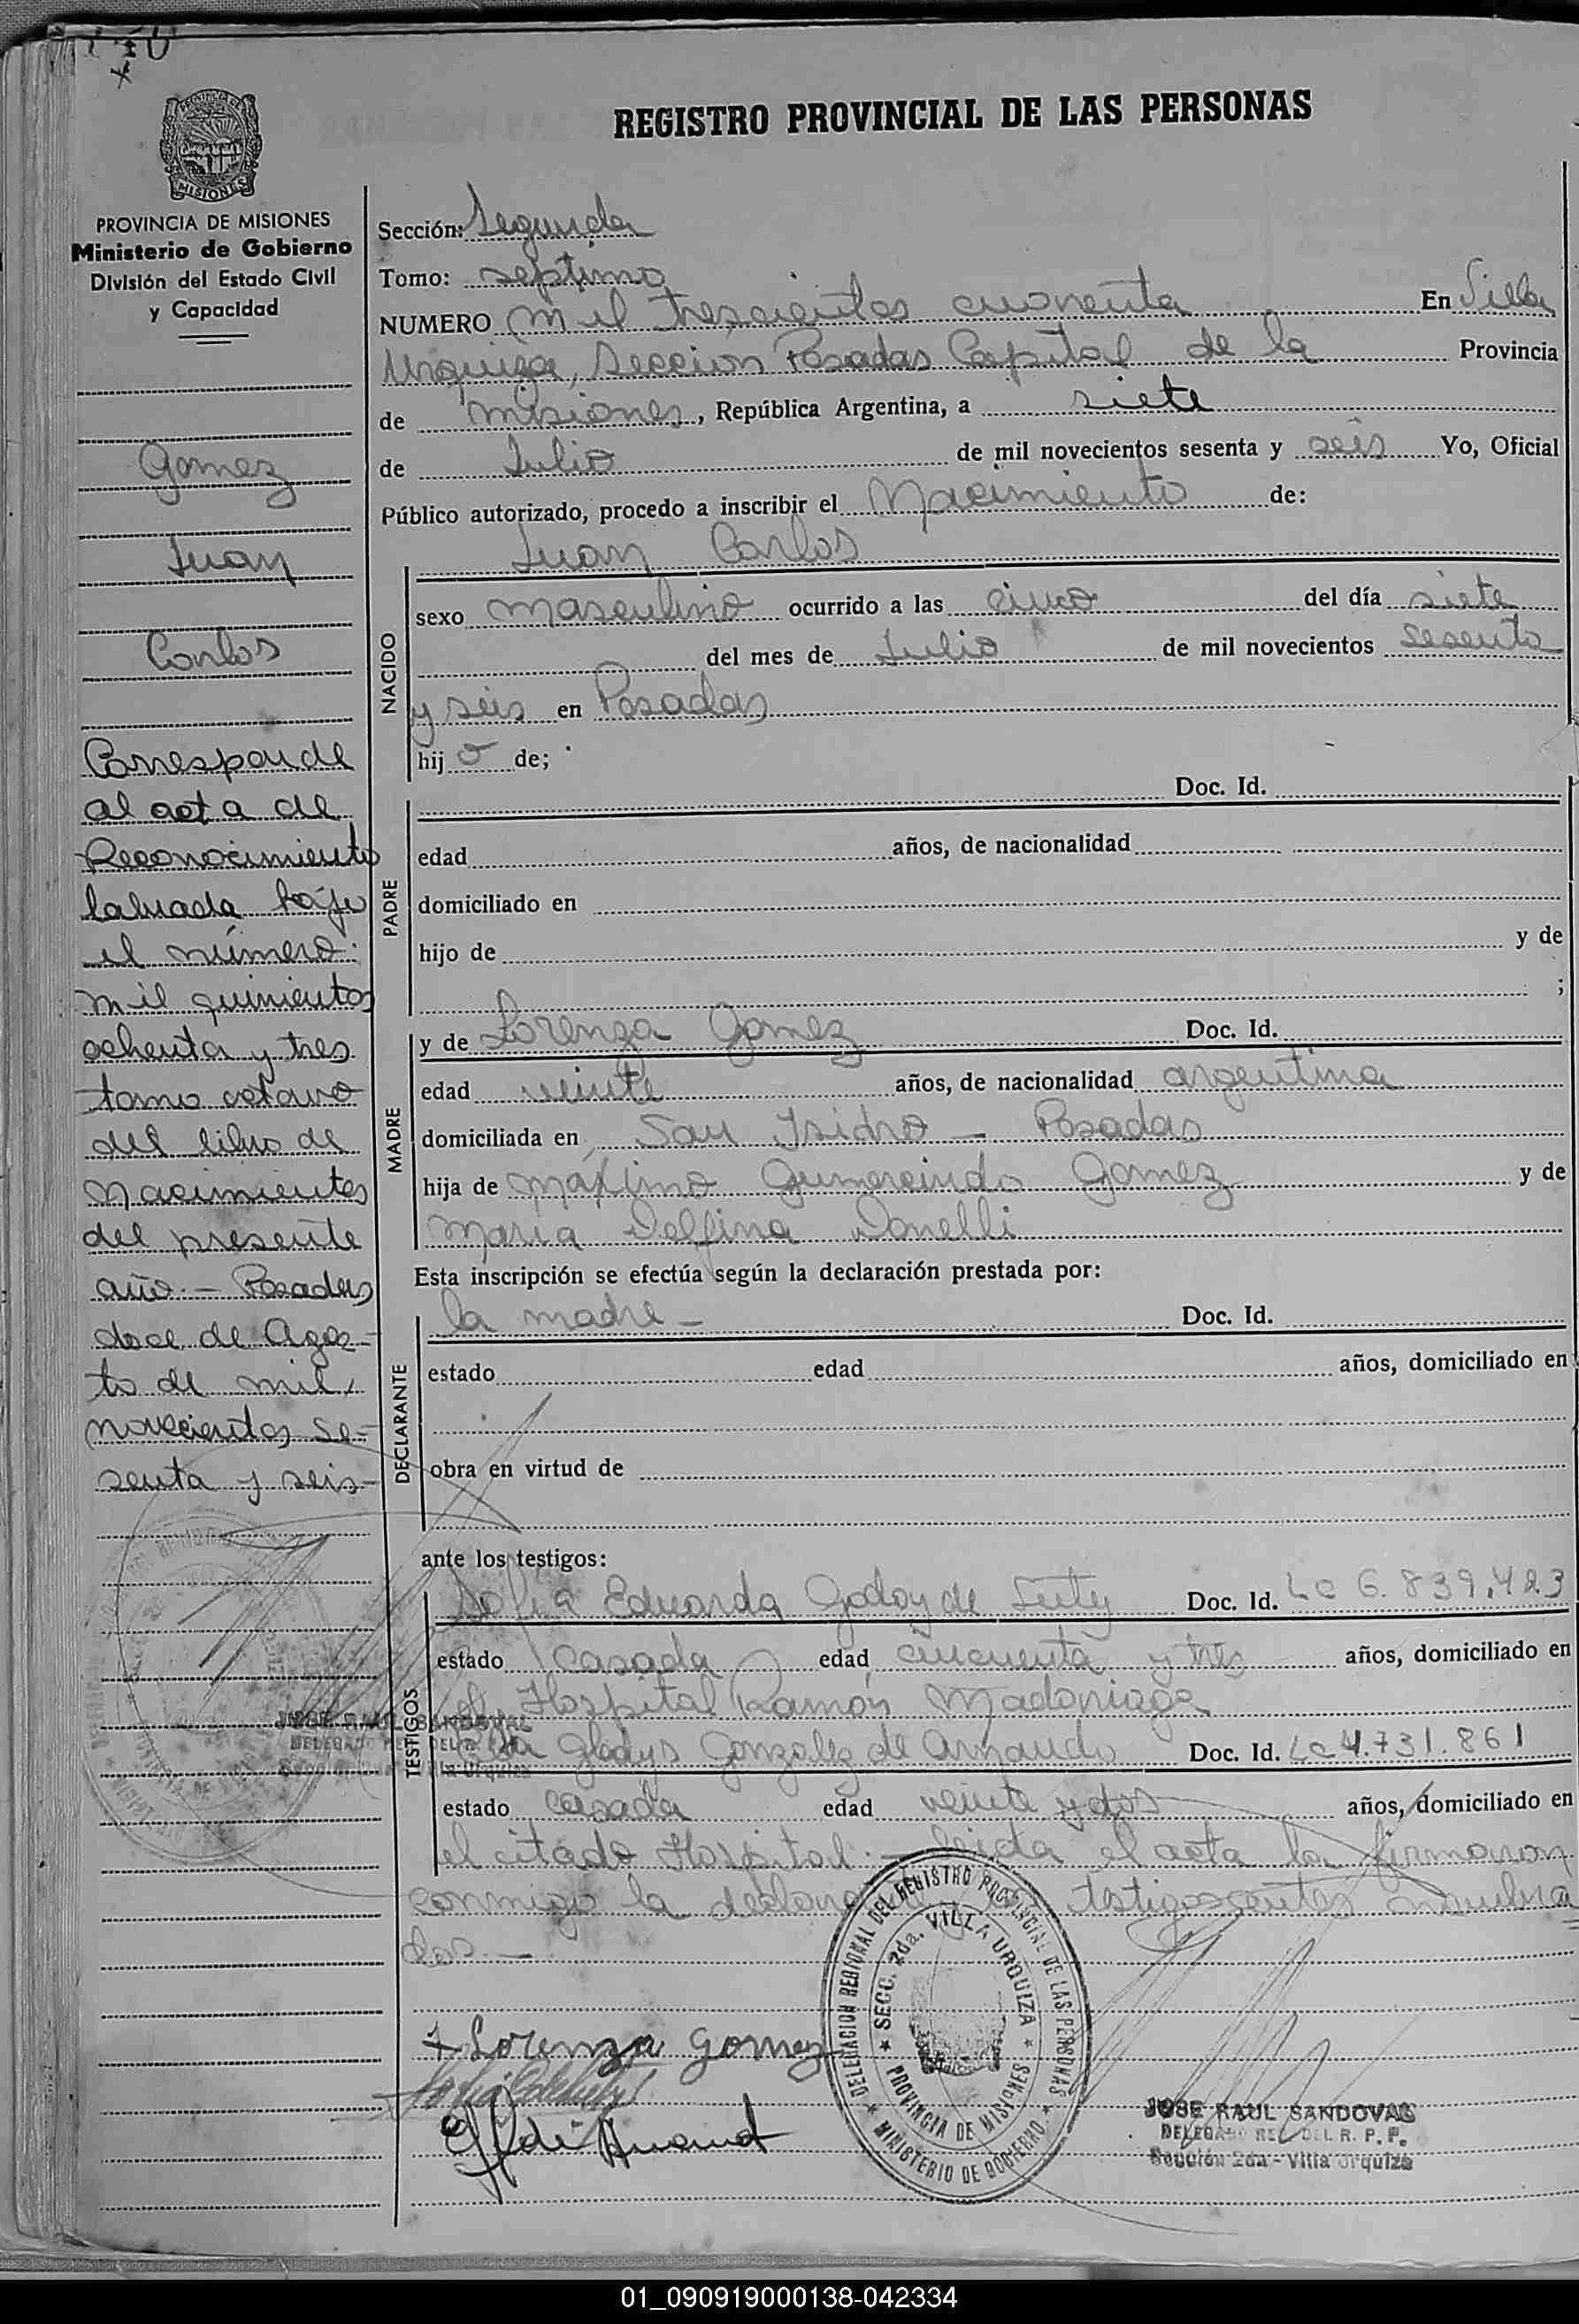 REGISTRO PROVINCIAL DE LAS PERSONAS
PROVINCIA DE MISIONES
Ministerio de Gobierno
División del Estado Civil
y Capacidad
Gomez
Juan
Carlos
Corresponde
al acta de
Reconocimiento
labrada bajo
el número:
mil quinientos
ochenta y tres
tomo octavo
del libro de
Nacimientos
del presente
año. - Posadas
doce de Agos-
to de mil
novecientos se-
senta y seis-
JOSE RAUL SANDOVAL
Sección: Segunda
Tomo: septimo
NUMERO mil trescientos cuarenta En Villa
Urquiza, Seccion Posadas Capital de la Provincia
de Misiones, República Argentina, a siete
de Julio de mil novecientos sesenta y seis Yo, Oficial
Público autorizado, procedo a inscribir el Nacimiento de:
Juan Carlos
NACIDO
sexo masculino ocurrido a las cinco del día siete
del mes de Julio de mil novecientos sesenta
y seis en Posadas
hijo de;
PADRE
Doc. Id.
edad años, de nacionalidad
domiciliado en
hijo de y de
;
MADRE
y de Lorenza Gomez Doc. Id.
edad veinte años, de nacionalidad argentina
domiciliada en San Isidro - Posadas
hija de Máximo Gumercindo Gomez y de
Maria Delfina Donelli
Esta inscripción se efectúa según la declaración prestada por:
DECLARANTE
la madre - Doc. Id.
estado edad años, domiciliado en
obra en virtud de
ante los testigos:
TESTIGOS
Sofia Eduarda Godoy de Doc. Id. LC 6.839.423
estado casada edad cincuenta y tres años, domiciliado en
el Hospital Ramón Madariaga
Gladys Gonzalez de Arnaudo Doc. Id. LC 4.731.861
estado casada edad veinte y dos años, domiciliado en
el citado Hospital. - leida el acta la firmaron
conmigo la testigos
dos. -
Lorenza Gomez
DELEGACION REGIONAL DEL REGISTRO PROVINCIAL DE LAS PERSONAS
★ MINISTERIO DE GOBIERNO ★
★ SECC. 2da. VILLA URQUIZA ★
PROVINCIA DE MISIONES
JOSE RAUL SANDOVAL
DELEGADO REG. DEL R. P. P.
Sección 2da - Villa Urquiza
01_090919000138-042334